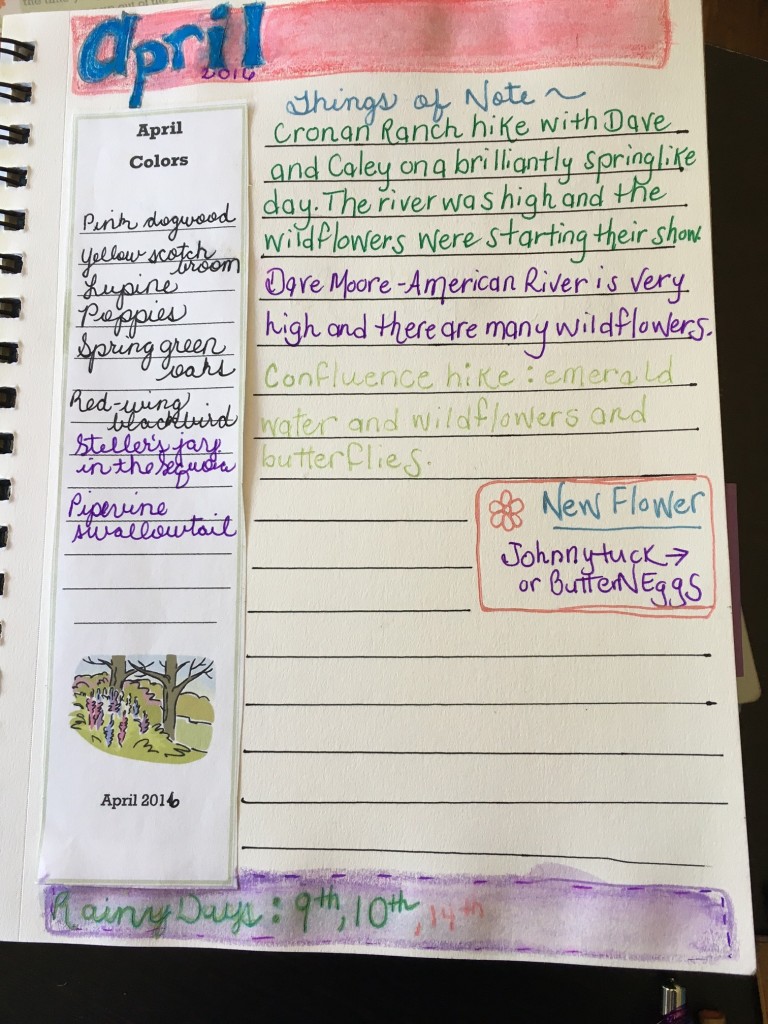 April
2016
April
Colors
Pink dogwood
Yellow scotch
broom
Lupine
Poppies
Spring green
oaks
Red-wing
blackbird
Steller's jays
in the sequoia
Pipevine
swallowtail
April 2016
Things of Note ~
Cronan Ranch hike with Dave
and Caley on a brilliantly springlike
day. The river was high and the
wildflowers were starting their show.
Dave Moore - American River is very
high and there are many wildflowers.
Confluence hike : emerald
water and wildflowers and
butterflies.
New Flower
Johnnytuck →
or ButterNEggs
Rainy Days : 9th, 10th, 14th